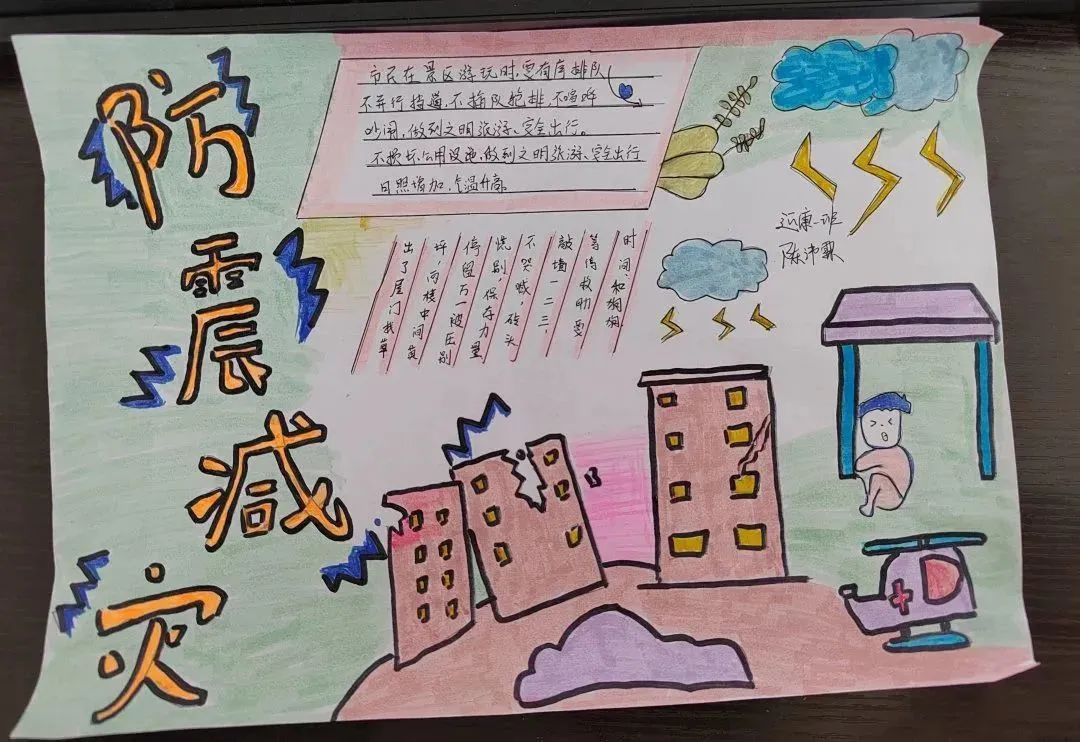 防震减灾
市民在景区游玩时,要有序排队
不并行 道,不插队抢排,不喧哗
吵闹,做到文明旅游、安全出行。
不损坏公用设施,做到文明旅游、安全出行
日照增加,气温升高
出了屋门找草
坪,两楼中间莫
停留万一被压别
慌别保存力量
不哭喊,砖头
敲墙一二三,
等待救助要
时间,和
康一班
陈沛霖